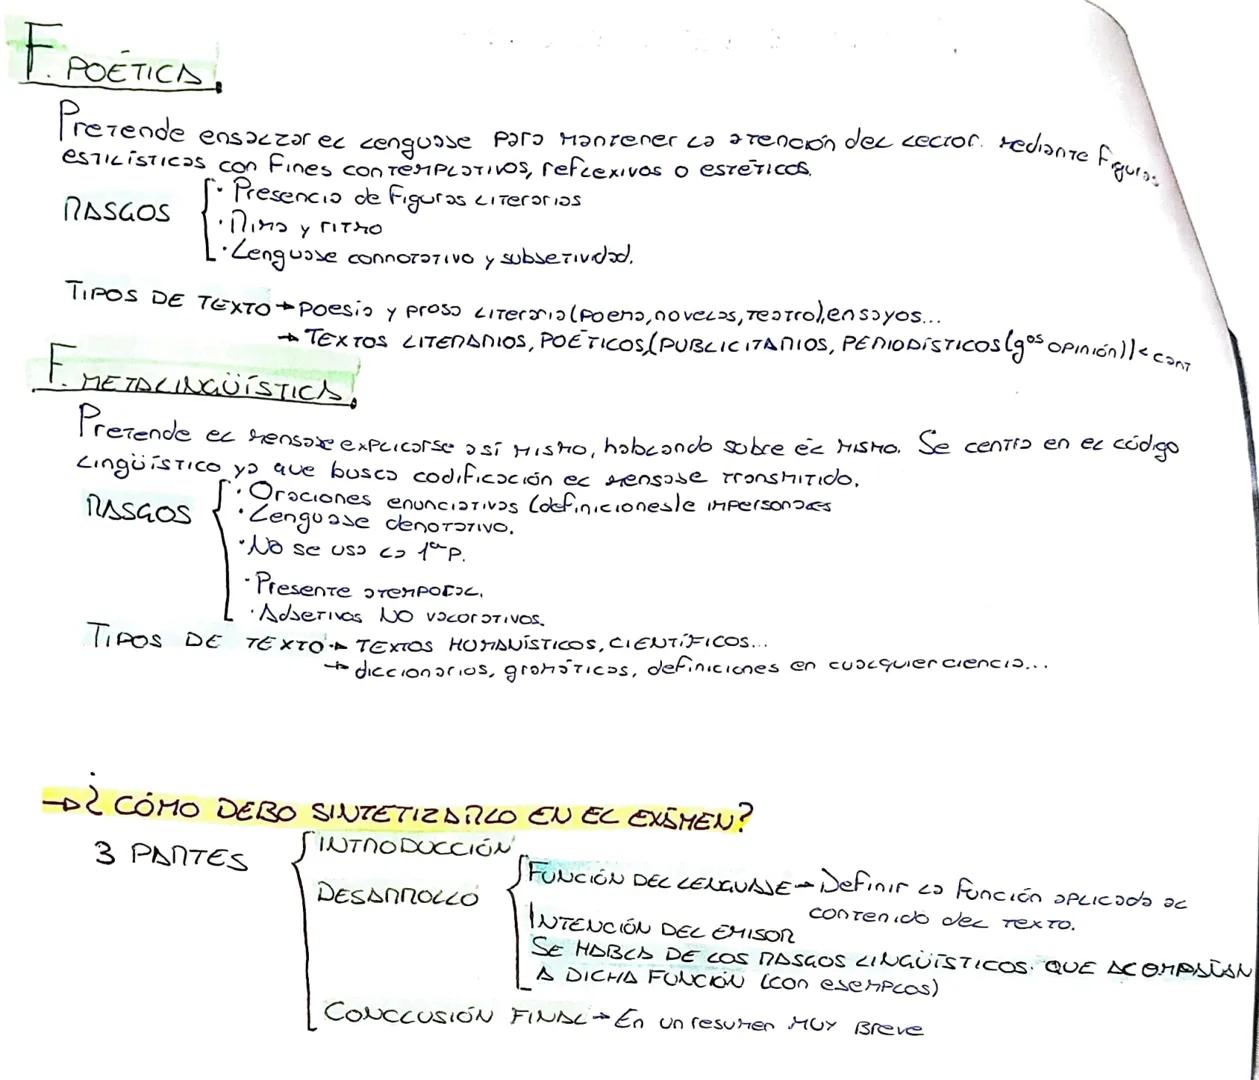 F. POÉTICA.
Pretende ensalzar el lenguaje para mantener la atención del lector. Mediante figuras
estilísticas con fines contemplativos, reflexivos o estéticos.
RASGOS
· Presencia de figuras literarias
· Rima y ritmo
· Lenguaje connotativo y subjetividad.
TIPOS DE TEXTO → poesía y prosa literaria (poema, novelas, teatro), ensayos...
→ TEXTOS LITERARIOS, POÉTICOS, (PUBLICITARIOS, PERIODÍSTICOS (gºs OPINIÓN)) <
F. METALINGÜÍSTICA.
Pretende el mensaje explicarse a sí mismo, hablando sobre él mismo. Se centra en el código
lingüístico ya que busca codificación el mensaje transmitido.
RASGOS
· Oraciones enunciativas (definiciones) e impersonales
· Lenguaje denotativo.
· No se usa la 1ª p.
· Presente atemporal.
· Adjetivos NO valorativos.
TIPOS DE TEXTO → TEXTOS HUMANÍSTICOS, CIENTÍFICOS...
→ diccionarios, gramáticas, definiciones en cualquier ciencia...
→ ¿CÓMO DEBO SINTETIZARLO EN EL EXÁMEN?
3 PARTES
INTRODUCCIÓN
DESARROLLO
FUNCIÓN DEL LENGUAJE → Definir la función aplicada al
contenido del texto.
INTENCIÓN DEL EMISOR
SE HABLA DE LOS RASGOS LINGÜÍSTICOS. QUE ACOMPAÑAN
A DICHA FUNCIÓN (con ejemplos)
CONCLUSIÓN FINAL → En un resumen MUY Breve